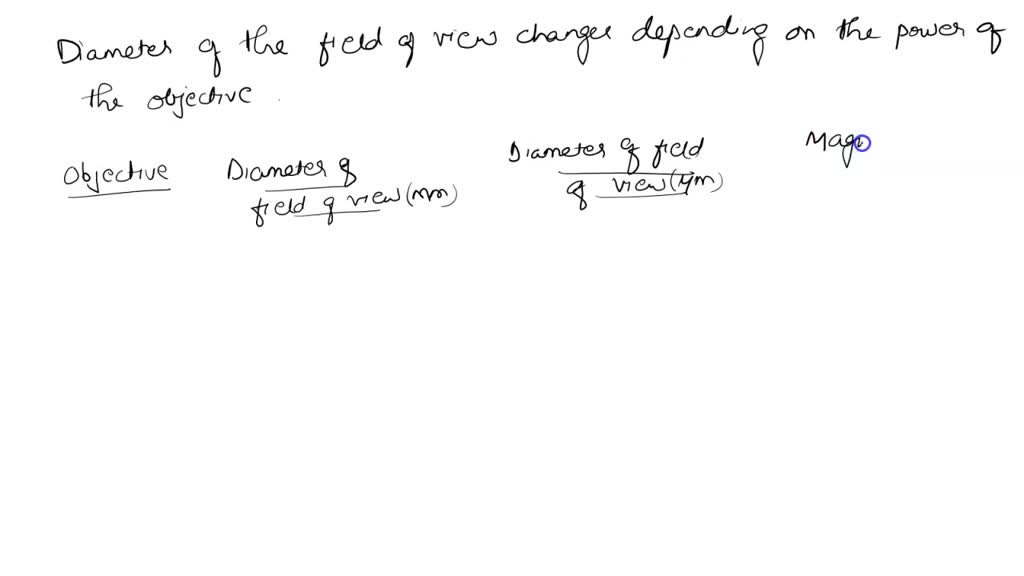 Diameter of the field of view changes depending on the power of
the objective.
Objective
Diameter of
field of view (mm)
Diameter of field
of view (μm)
Mag